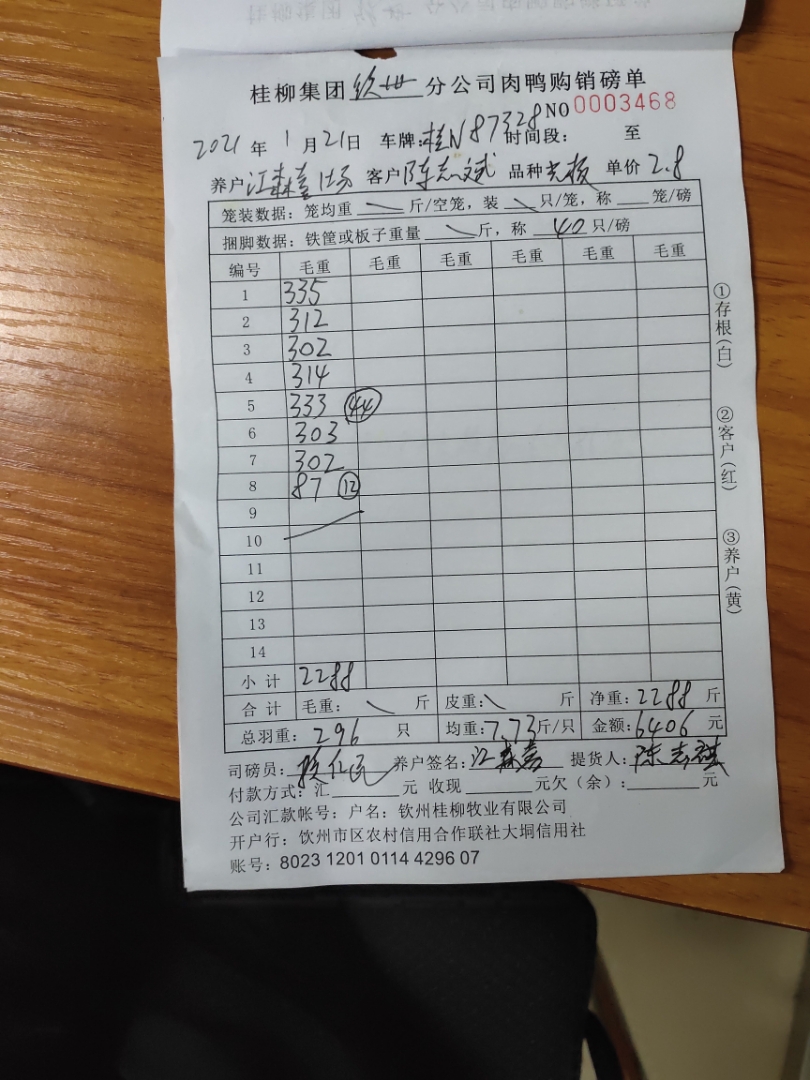 桂柳集团钦州分公司肉鸭购销磅单
NO 0003468
2021年1月21日 车牌:桂N87328 时间段: 至
养户 江森 客户 陈志斌 品种 单价 2.8
笼装数据：笼均重 \ 斤/空笼，装 \ 只/笼，称 笼/磅
捆脚数据：铁筐或板子重量 \ 斤，称 40 只/磅
编号 毛重 毛重 毛重 毛重 毛重 毛重
1 335
2 312
3 302
4 314
5 333 44
6 303
7 302
8 87 12
9
10
11
12
13
14
小计 2288
合计 毛重: \ 斤 皮重: \ 斤 净重: 2288 斤
总羽重: 296 只 均重: 7.73 斤/只 金额: 6406 元
司磅员: 养户签名: 江森 提货人: 陈志
付款方式: 汇 元 收现 元欠（余）: 元
公司汇款帐号：户名：钦州桂柳牧业有限公司
开户行：钦州市区农村信用合作联社大垌信用社
账号：8023 1201 0114 4296 07
①存根（白）
②客户（红）
③养户（黄）